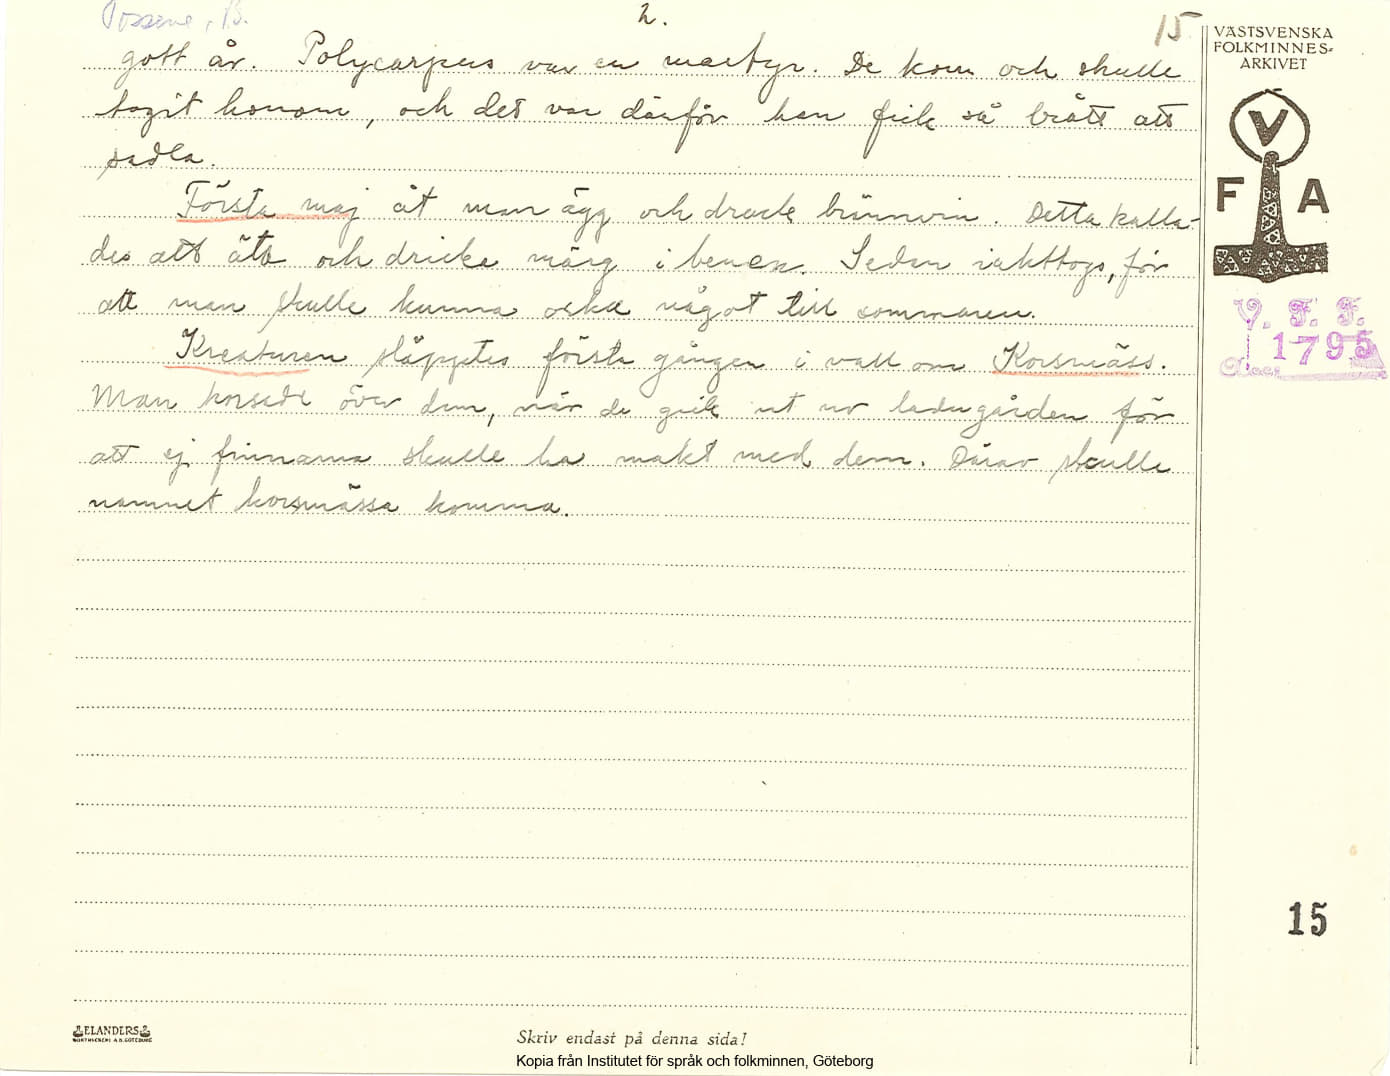 Tossene, B.
2.
15
VÄSTSVENSKA
FOLKMINNES-
ARKIVET
gott år. Polycarpus var en martyr. De kom och skulle
tagit honom, och det var därför han fick så brått att
sadla.
Första maj åt man ägg och drack brännvin. Detta kalla-
des att äta och dricka märg i benen. Seden iakttogs, för
att man skulle kunna orka något till sommaren.
Kreaturen släpptes första gången i vall om Korsmäss.
Man korsade över dem, när de gick ut ur ladugården för
att ej finnarna skulle ha makt med dem. Därav skulle
namnet korsmässa komma.
V
F A
V. F. F.
1795
15
ELANDERS
Skriv endast på denna sida!
Kopia från Institutet för språk och folkminnen, Göteborg